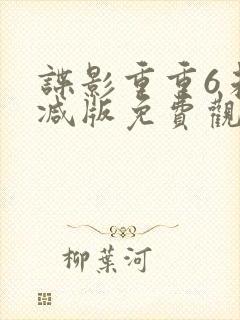 諜影重重6未
减版免費觀
柳葉河